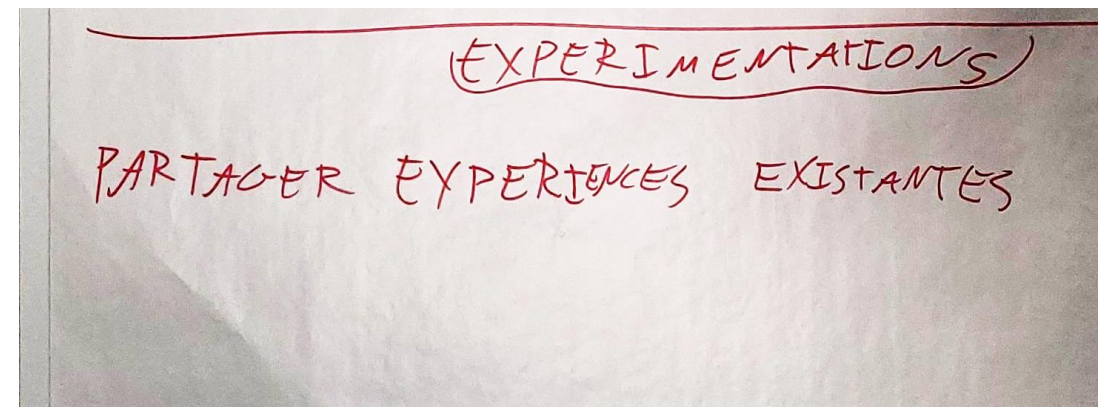 EXPERIMENTATIONS
PARTAGER EXPERIENCES EXISTANTES